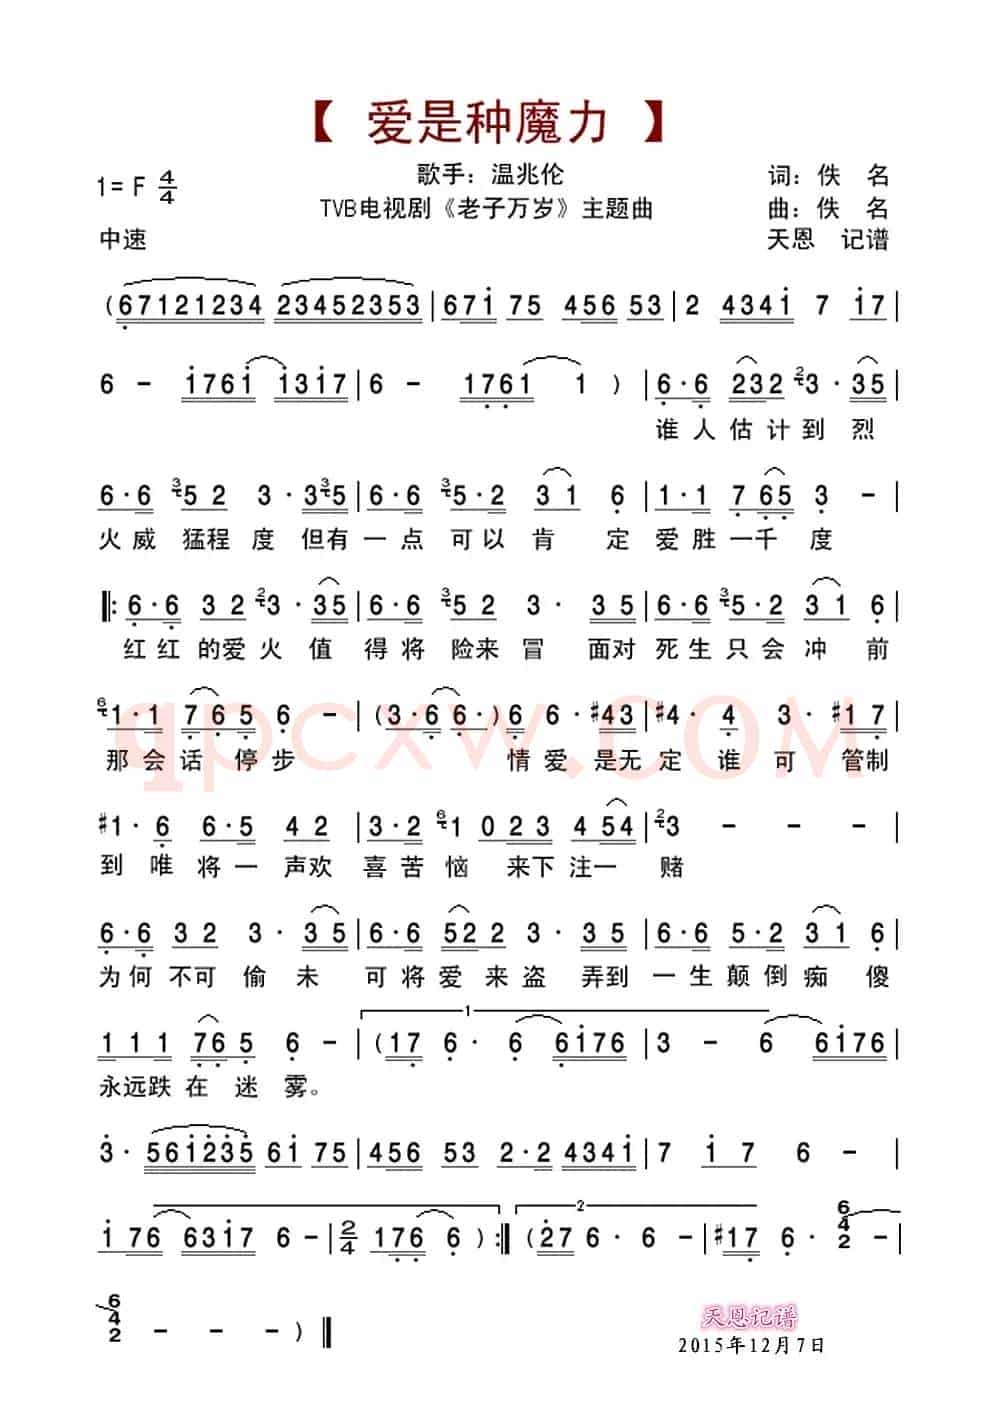 【 爱是种魔力 】
1= F 4/4
歌手：温兆伦
词：佚 名
TVB电视剧《老子万岁》主题曲
曲：佚 名
中速
天恩 记谱
(67121234 23452353|671 75 456 53|2 4341 7 17|
6 - 1761 1317|6 - 1761 1 )|6·6 232 23·35|
谁人估计到烈
6·6 352 3·335|6·6 35·2 31 6|1·1 765 3 -|
火威 猛程 度 但有一点 可以 肯 定 爱胜一千 度
‖:6·6 32 23·35|6·6 352 3· 35|6·6 35·2 31 6|
红红 的爱火 值 得将 险来 冒 面对 死生只会冲 前
61·1 765 6 -|(3·66·)6 6·#43|#4· 4 3·#17|
那会话 停步 情爱 是无定 谁 可 管制
qpcxw.com
#1·6 6·5 42|3·2 61 023 454|23 - - -|
到 唯 将一 声欢 喜苦恼 来下注一 赌
6·6 32 3·35|6·6 522 3· 35|6·6 5·2 31 6|
为何 不可 偷 未 可将爱来盗 弄到 一生颠倒痴 傻
1
111 765 6 -|(17 6·6 6176|3 - 6 6176|
永远跌 在 迷 雾。
3·561235 61 75|456 53 2·2 4341|7 17 6 -|
2
1 76 6317 6-|2/4 176 6 ):‖(27 6·6 -|#17 6· 642 -|
642 - - -)‖
天恩记谱
2015年12月7日